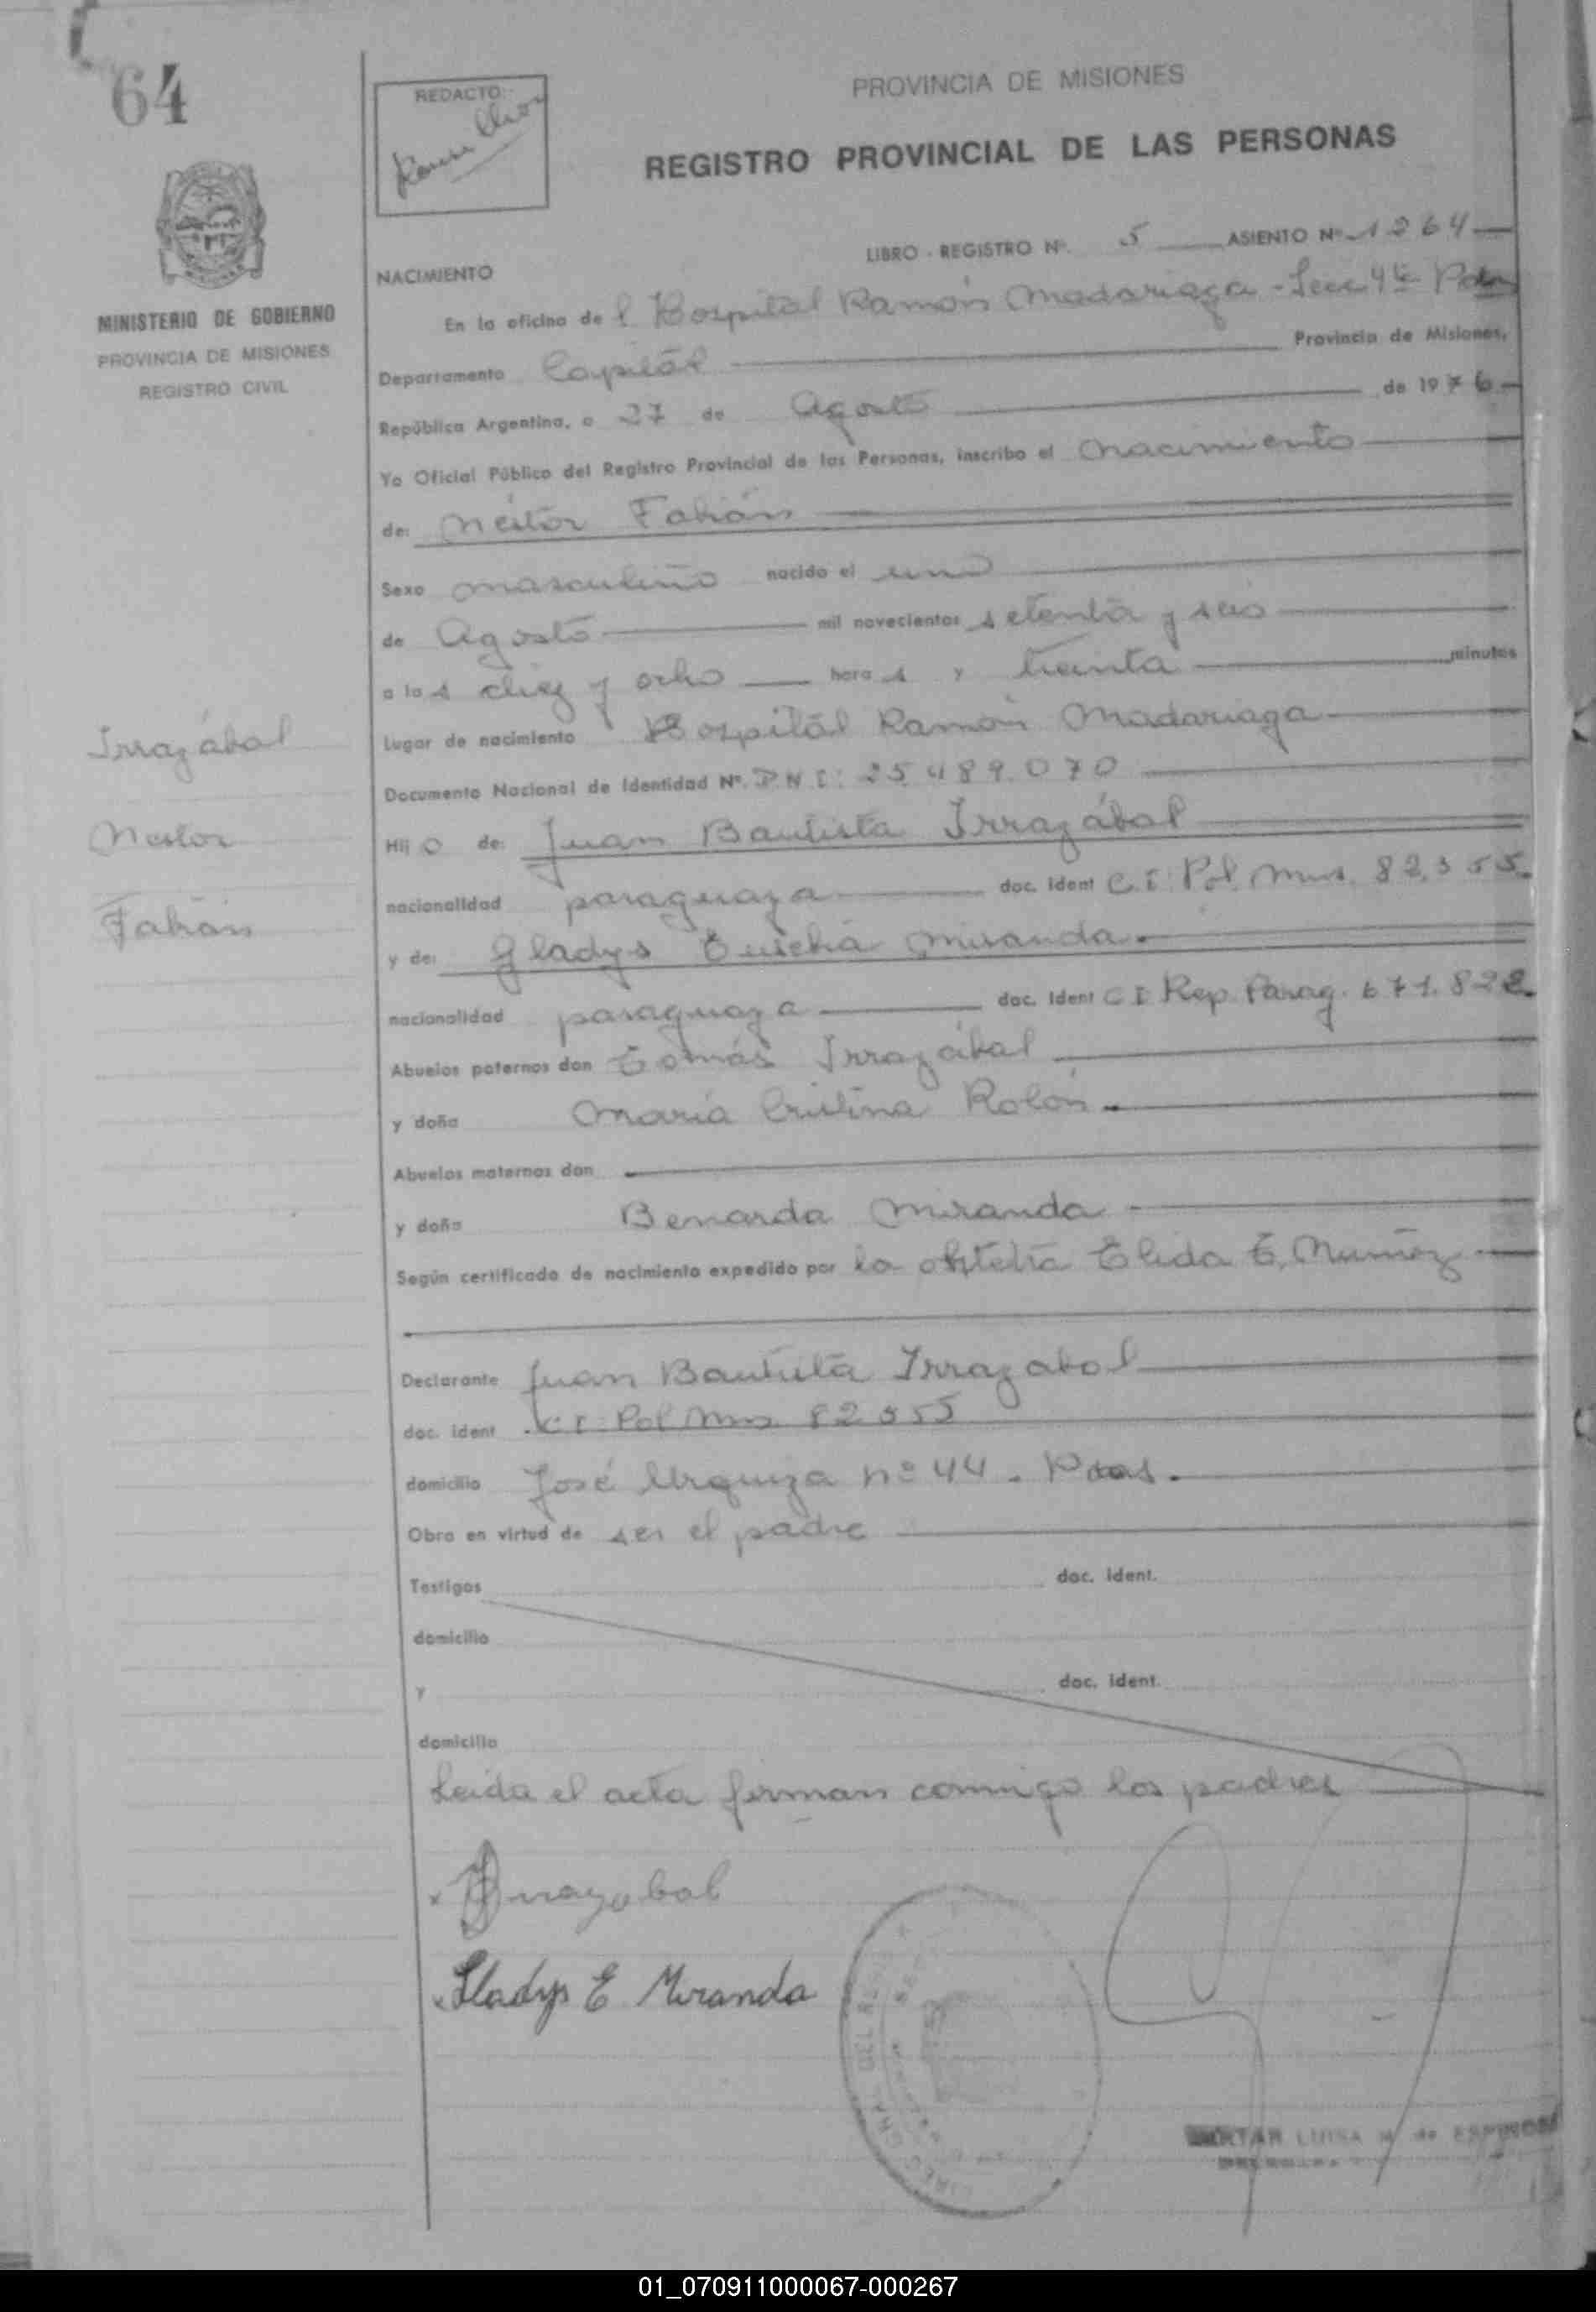 64
REDACTO:
PROVINCIA DE MISIONES
REGISTRO PROVINCIAL DE LAS PERSONAS
MINISTERIO DE GOBIERNO
PROVINCIA DE MISIONES
REGISTRO CIVIL
LIBRO - REGISTRO Nº. 5 ASIENTO Nº 1264
NACIMIENTO
En la oficina de l Hospital Ramón Madariaga - Secc 4ta
Departamento Capital Provincia de Misiones,
República Argentina, a 27 de Agosto de 1976
Yo Oficial Público del Registro Provincial de las Personas, inscribo el nacimiento
de: Néstor Fabián
Sexo masculino nacido el uno
de Agosto mil novecientos setenta y seis
a las diez y ocho horas y treinta minutos
Lugar de nacimiento Hospital Ramón Madariaga
Documento Nacional de Identidad Nº. D.N.I: 25.489.070
Irrazábal
Nestor
Fabián
Hijo de: Juan Bautista Irrazábal
nacionalidad paraguaya doc. ident C.I. Pol. Mns. 82.355
y de: Gladys Eusebia Miranda
nacionalidad paraguaya doc. ident C I Rep. Parag. 671.822
Abuelos paternos don Tomás Irrazábal
y doña María Cristina Rolón
Abuelos maternos don
y doña Benarda Miranda
Según certificado de nacimiento expedido por la obstetra Elida E. Munoz
Declarante Juan Bautista Irrazabal
doc. ident C.I. Pol Mns 82355
domicilio José Urquiza nº 44. Pdas.
Obra en virtud de ser el padre
Testigos doc. ident.
domicilio
y doc. ident.
domicilio
Leida el acta firman conmigo los padres
Irrazabal
Gladys E Miranda
LUISA M de
01_070911000067-000267